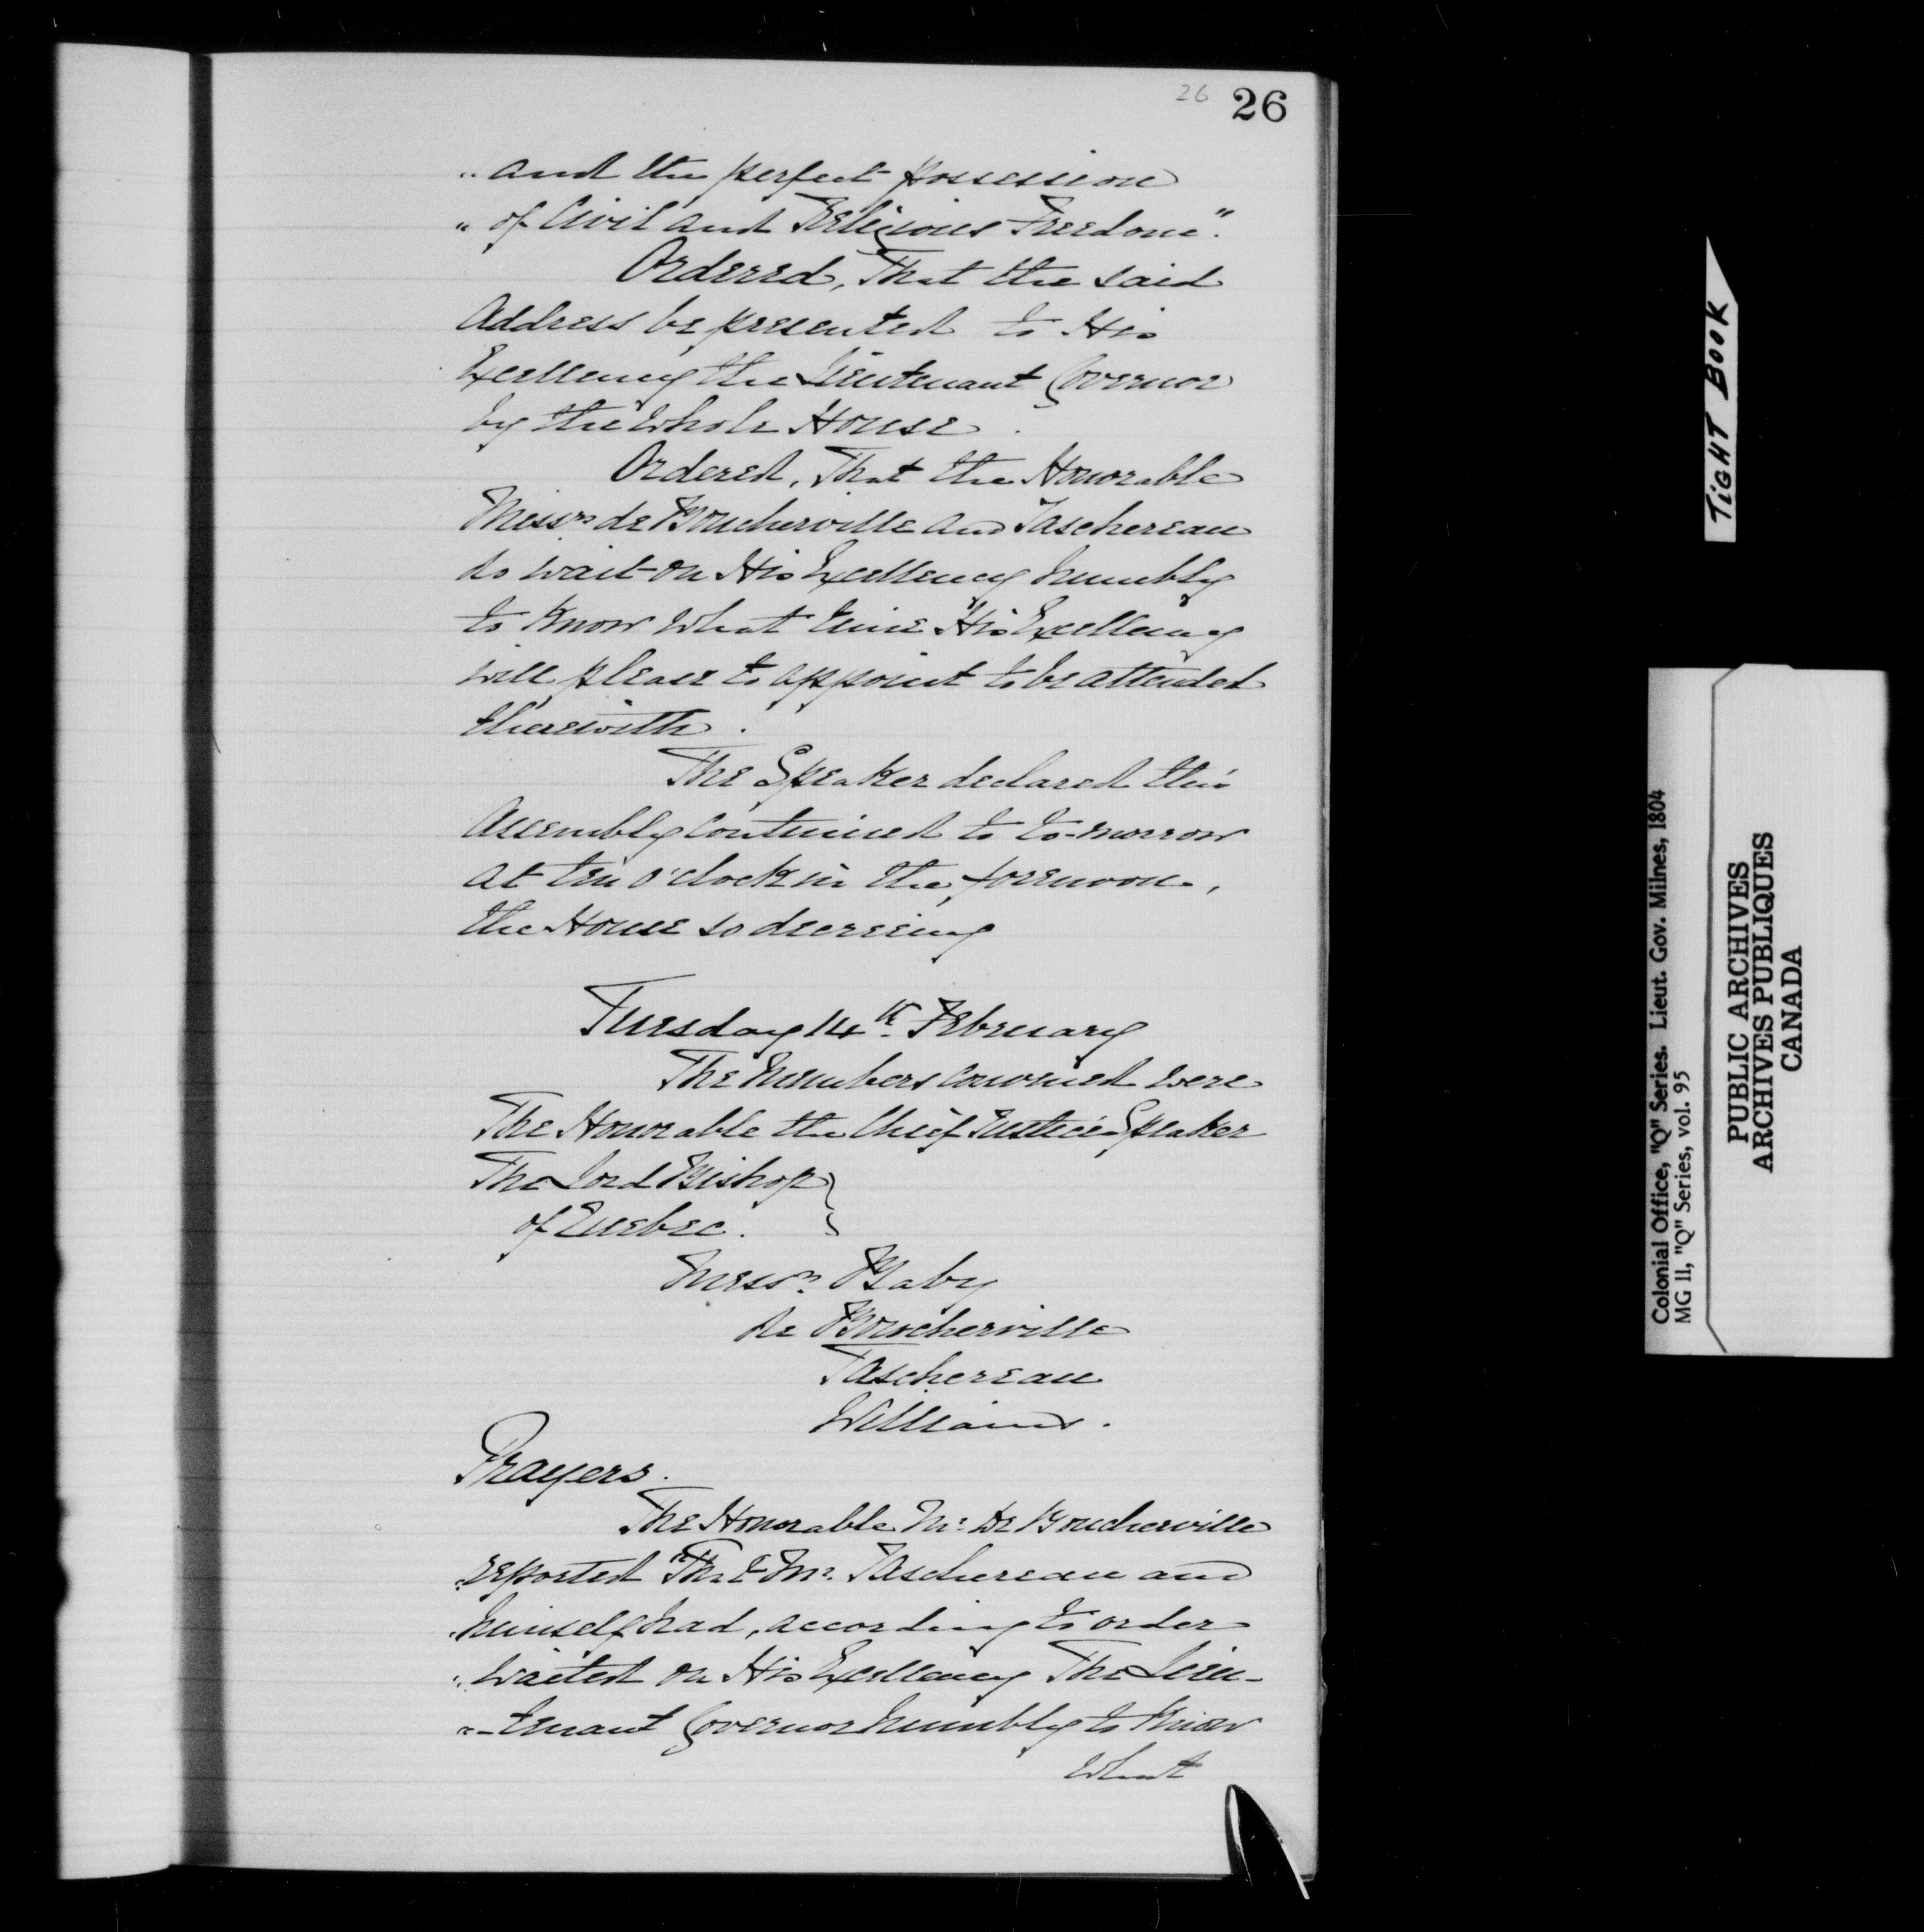 26 26
" and the perfect possession
" of Civil and Religious Freedom."
Ordered, That the said
Address be presented to His
Excellency the Lieutenant Governor
by the whole House.
Ordered, That the Honorable
Messrs. de Boucherville and Taschereau
do wait on His Excellency humbly
to know what time His Excellency
will please to appoint to be attended
therewith.
The Speaker declared this
Assembly continued to to-morrow
at ten o'clock in the forenoon,
the House so decreeing
Tuesday 14th. February
The Members convened were
The Honorable the Chief Justice Speaker
The Lord Bishop }
of Quebec. }
Messrs. Baby
de Boucherville
Taschereau
Williams.
Prayers.
The Honorable Mr. De Boucherville
reported "That Mr. Taschereau and
" himself had, according to order
" waited on His Excellency The Lieu-
"-tenant Governor humbly to know
what
TIGHT BOOK
Colonial Office, "Q" Series. Lieut. Gov. Milnes, 1804
MG 11, "Q" Series, vol. 95
PUBLIC ARCHIVES
ARCHIVES PUBLIQUES
CANADA